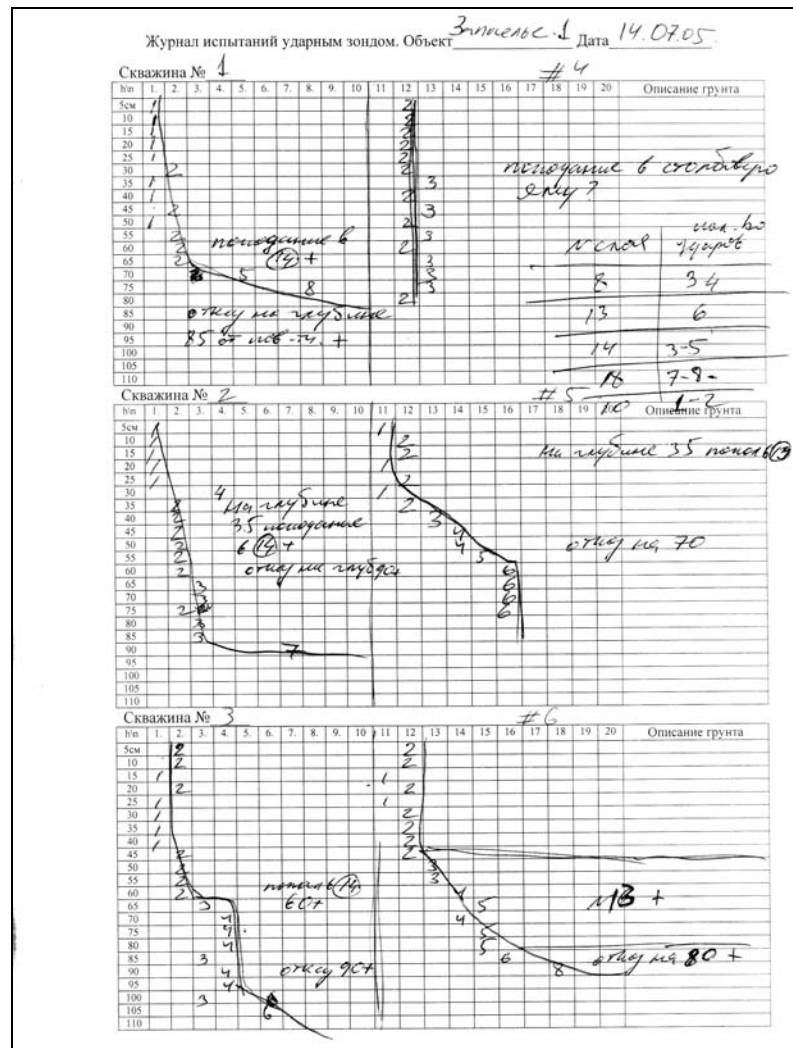 Журнал испытаний ударным зондом. Объект Дата 14.07.05
Скважина № 1 #4
h\n 1. 2. 3. 4. 5. 6. 7. 8. 9. 10 11 12 13 14 15 16 17 18 19 20 Описание грунта
5см 1 2
10 2
15 1 2
20 1 2
25 1 2
30 2 2
35 1 3
40 1 2
45 2 3
50 1 2
55 2 3
60 2 2
65 2 3
70 5 3
75 8 3
80 2
85
90
95
100
105
110
попадание в
14 +
отказ на глубине
85 от пов-ти. +
попадание в столбовую
яму?
N слоя кол-во ударов
8 3-4
13 6
14 3-5
18 7-8-
100 1-2
Скважина № 2 #5
h\n 1. 2. 3. 4. 5. 6. 7. 8. 9. 10 11 12 13 14 15 16 17 18 19 20 Описание грунта
5см 1 1
10 1 2
15 1 2
20 1 1
25 1
30 1
35 2 2
40 2 3
45 2 4
50 2 4
55 2 5
60 2 6
65 3 6
70 3 6
75 2 6
80 3
85 3
90 7
95
100
105
110
На глубине
35 попадание
в 14 +
отказ на глуб 90+
на глубине 35 попал в 13
отказ на 70
Скважина № 3 #6
h\n 1. 2. 3. 4. 5. 6. 7. 8. 9. 10 11 12 13 14 15 16 17 18 19 20 Описание грунта
5см 2 2
10 2 2
15 1 1
20 2 2
25 1 1
30 1 2
35 1 2
40 1 2
45 2 2
50 2 3
55 2 3
60 2 4
65 3 5
70 4 4
75 4 5
80 4 5
85 3 6
90 4 8
95 4
100 3
105 6
110
попал в 14
60+
отказ 90+
13 +
отказ на 80 +